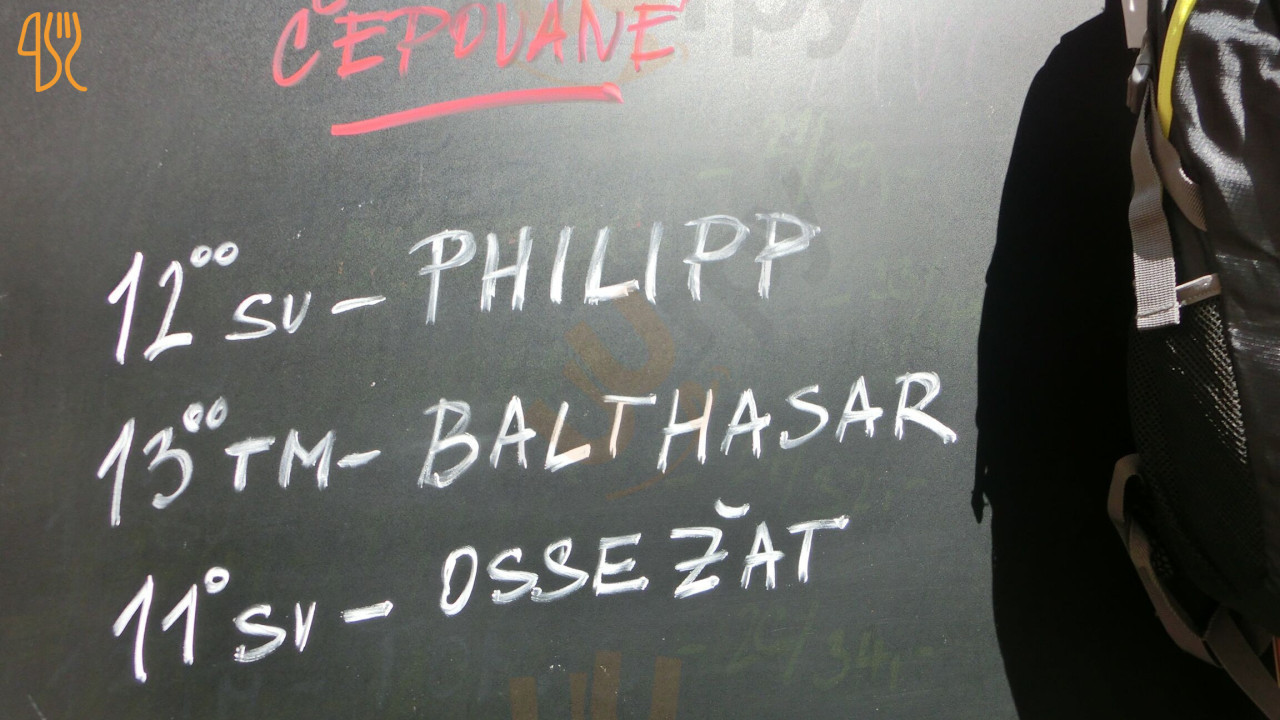 ČEPOVANÉ
12°° SV - PHILIPP
13°° TM - BALTHASAR
11° SV - OSSEŽĂT